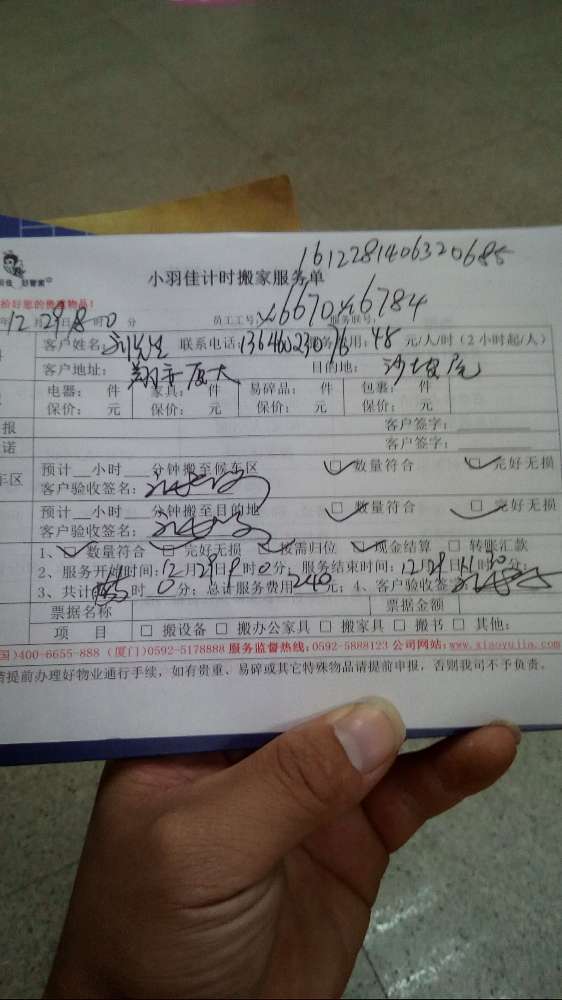 1612281406320685
小羽佳计时搬家服务单
12月29日8时0分 员工工号: 服务联号:
6670 6784
客户姓名: 刘先生 联系电话: 服务费用:48元/人/时(2小时起/人)
客户地址: 翔安厦大 目的地: 沙坡尾
电器: 件 家具: 件 易碎品: 件 包裹: 件
保价: 元 保价: 元 保价: 元 保价: 元
报 客户签字:
诺 客户签字:
车区 预计__小时__分钟搬至候车区 □数量符合 □完好无损
客户验收签名:
预计__小时__分钟搬至目的地 □数量符合 □完好无损
客户验收签名:
1、□数量符合 □完好无损 □按需归位 □现金结算 □转账汇款
2、服务开始时间:12月29日9时0分;服务结束时间:12月29日11时30分;
3、共计 时0分;总计服务费用240元;4、客户验收签字
票据名称 票据金额
项 目 □搬设备 □搬办公家具 □搬家具 □搬书 □其他:
国)400-6655-888 (厦门)0592-5178888 服务监督热线:0592-5888123 公司网站:www.xiaoyujia.com
请提前办理好物业通行手续,如有贵重、易碎或其它特殊物品请提前申报,否则我司不予负责。